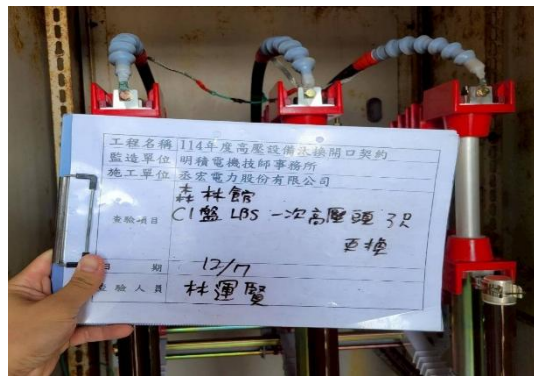 工程名稱 114年度高壓設備汰換開口契約
監造單位 明積電機技師事務所
施工單位 丞宏電力股份有限公司
森林館
查驗項目 C1盤 LBS 一次高壓頭 3只
更換
日期 12/7
查驗人員 林運賢